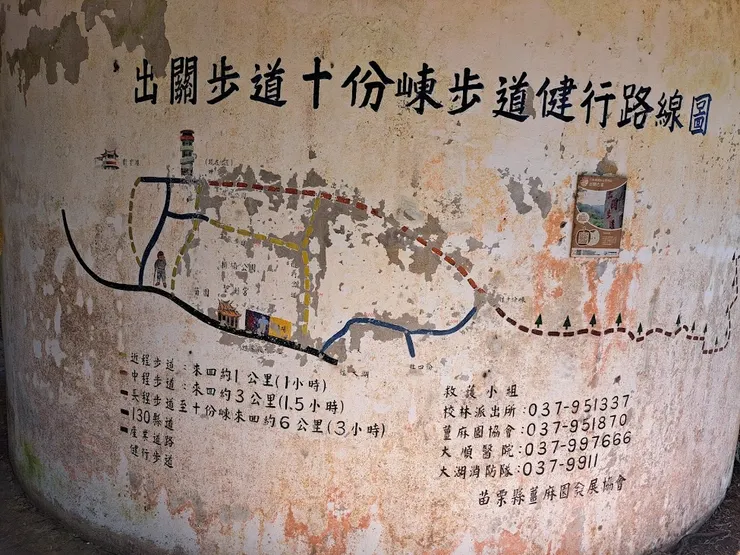 出關步道十份崠步道健行路線圖
近程步道：來回約1公里(1小時)
中程步道：來回約3公里(1.5小時)
長程步道至十份崠來回約6公里(3小時)
130縣道路
產業道路
健行步道
救護小組
校林派出所：037-951337
薑麻園協會：037-951870
大順醫院：037-997666
大湖消防隊：037-9911
苗栗縣薑麻園發展協會